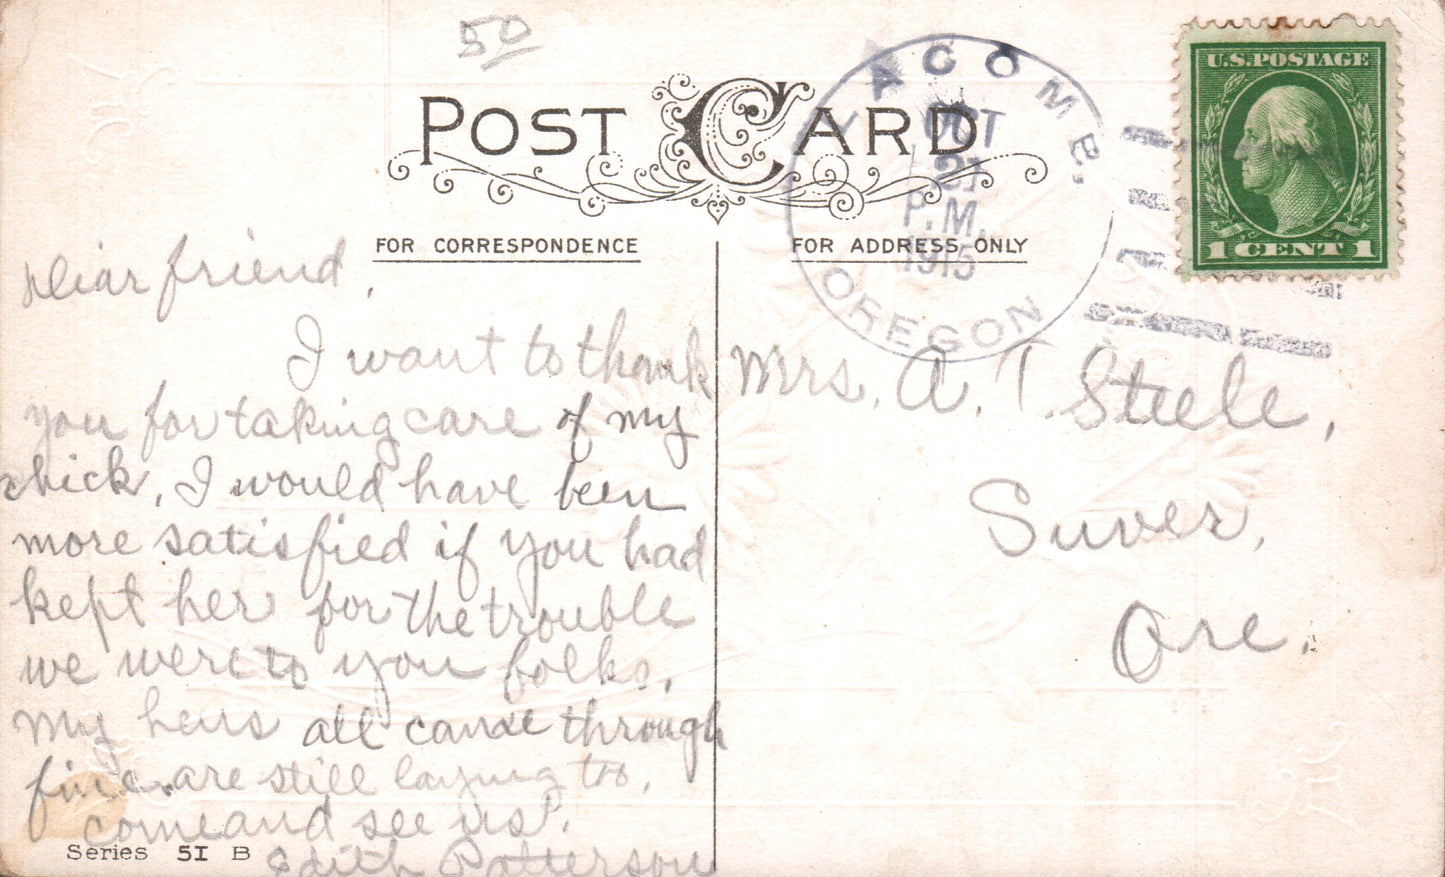 50
POST CARD
FOR CORRESPONDENCE
FOR ADDRESS ONLY
LACOMB,
OCT
21
P.M.
1915
OREGON
U.S. POSTAGE
1 CENT 1
Dear friend,
I want to thank
you for taking care of my
chick, I would have been
more satisfied if you had
kept her for the trouble
we were to you folks.
My hens all came through
fine. are still laying too.
come and see us.
Edith Patterson
Mrs. A. T. Steele,
Suver,
Ore.
Series 51 B